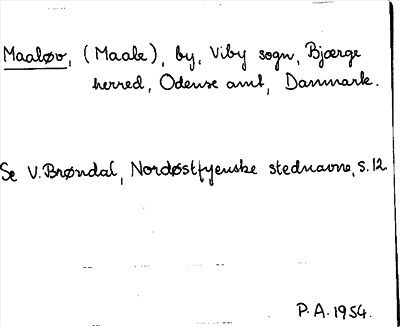 Maaløv, (Maale), by, Viby sogn, Bjærge
herred, Odense amt, Danmark.
Se V. Brøndal, Nordøstfyenske stednavne, s. 12
P. A. 1954.